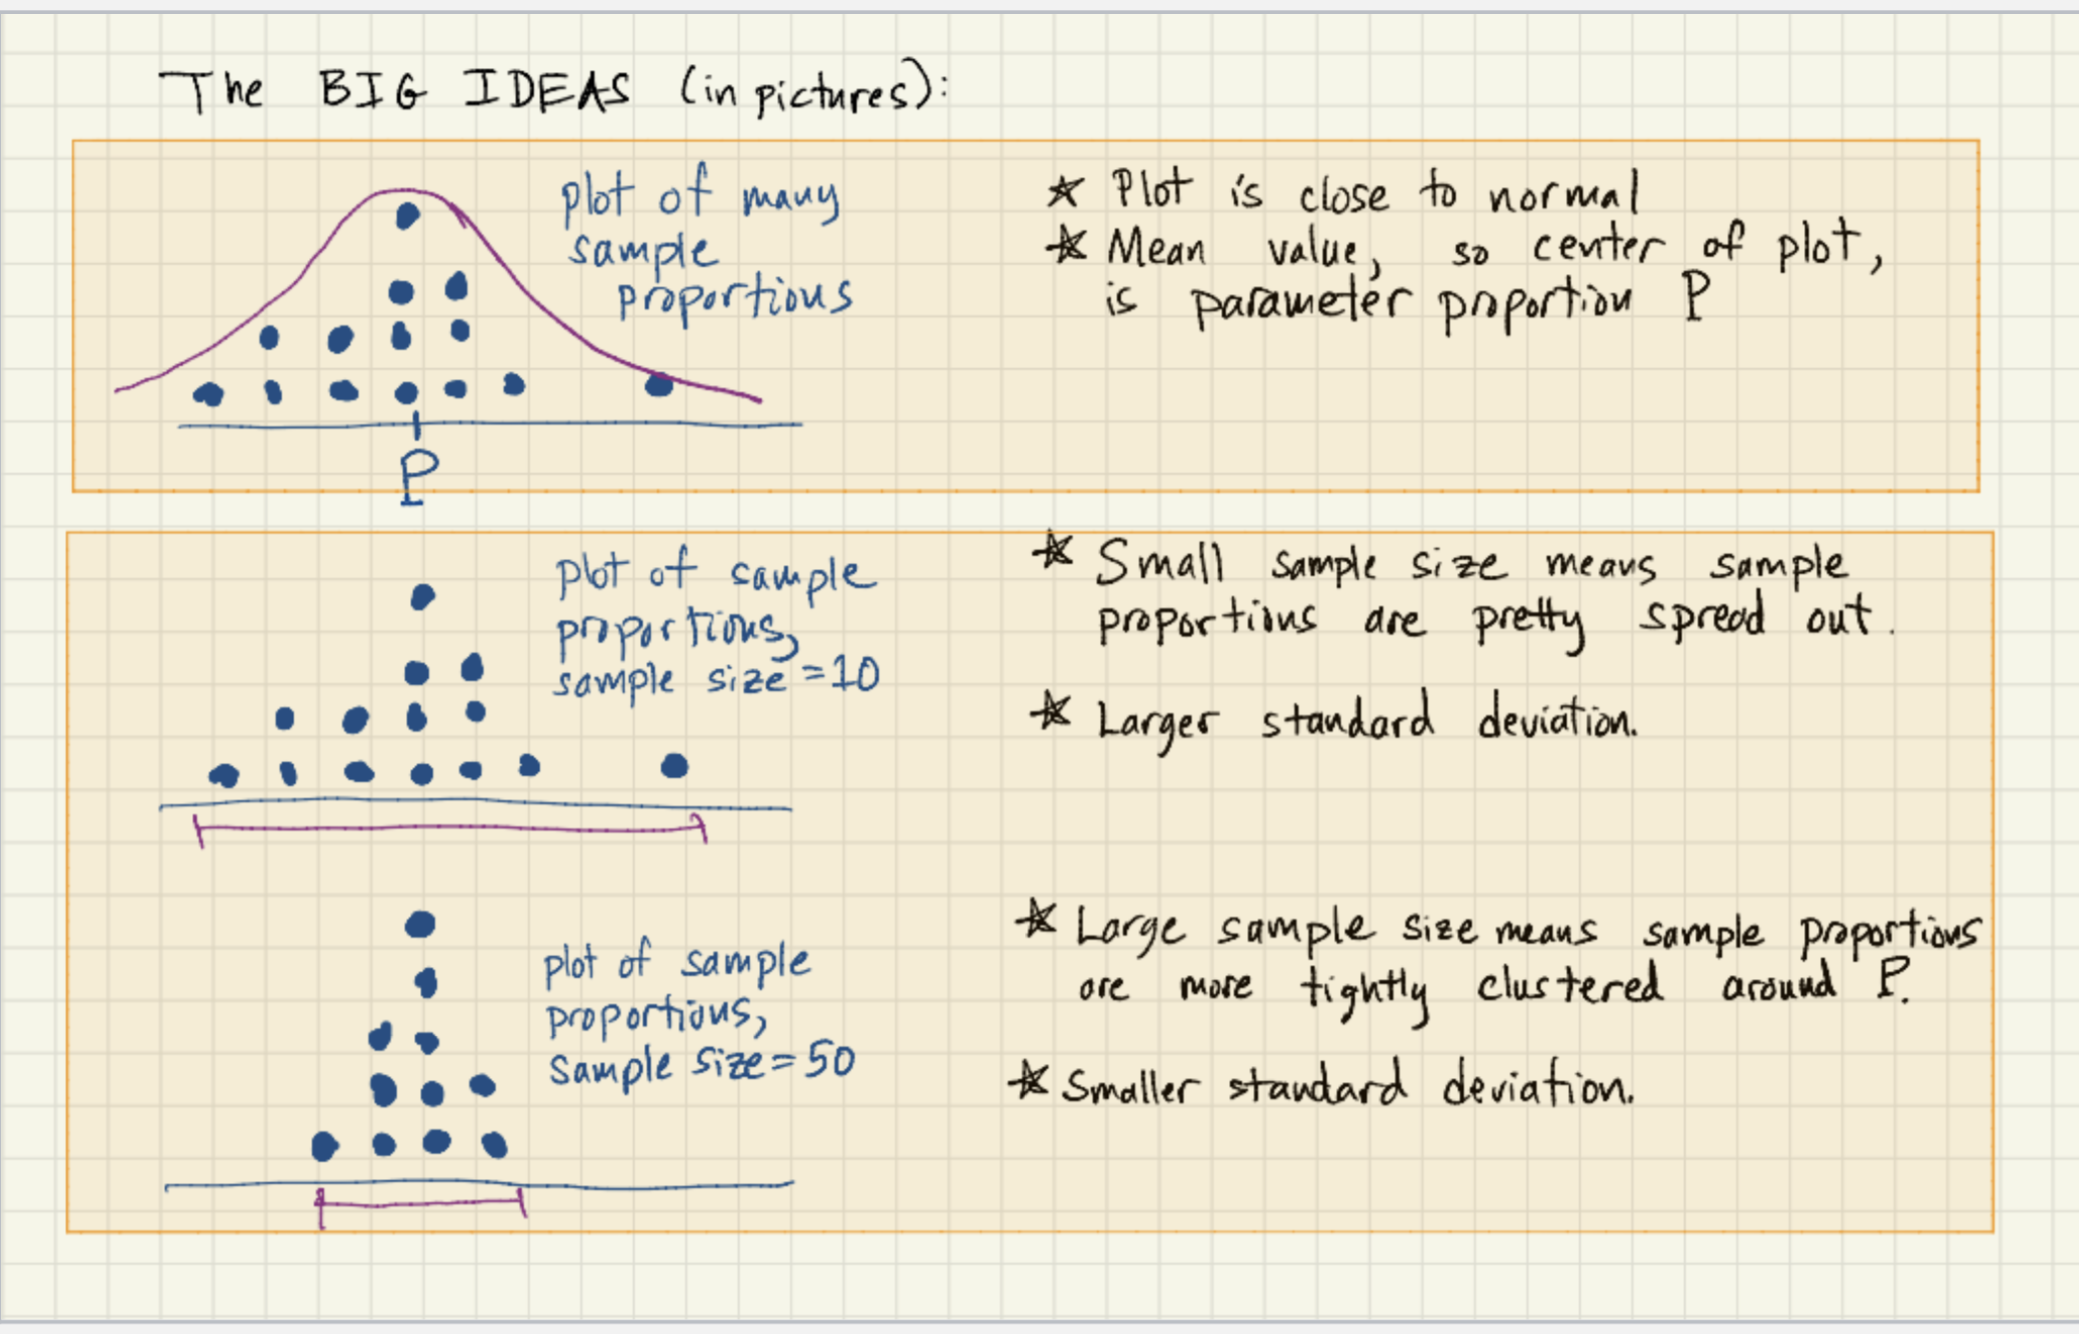 The BIG IDEAS (in pictures):
plot of many
sample
proportions
P
★ Plot is close to normal
★ Mean value, so center of plot,
is parameter proportion P
plot of sample
proportions,
sample size = 10
★ Small sample size means sample
proportions are pretty spread out.
★ Larger standard deviation.
plot of sample
proportions,
sample size = 50
★ Large sample size means sample proportions
are more tightly clustered around P.
★ Smaller standard deviation.